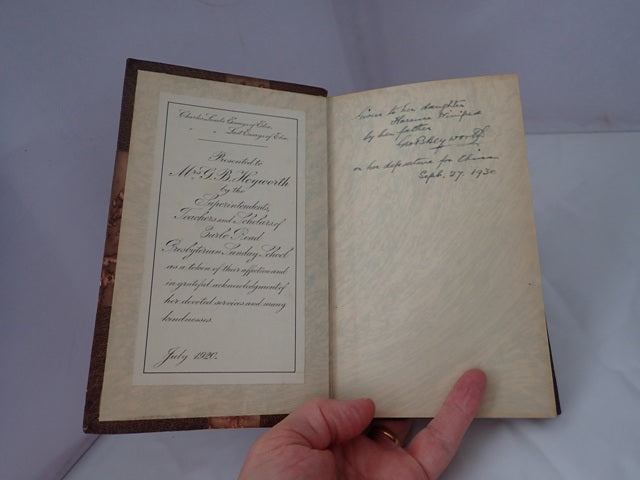 Charles Lamb's Essays of Elia,
" " Last Essays of Elia.
Presented to
Mrs. G. B. Heyworth
by the
Superintendents,
Teachers and Scholars of
Earle Road
Presbyterian Sunday School
as a token of their affection and
in grateful acknowledgment of
her devoted services and many
kindnesses.
July 1920.
Given to her daughter
Florence Winifred
by her father
Geo B Heyworth
on her departure for China
Sept. 27. 1930